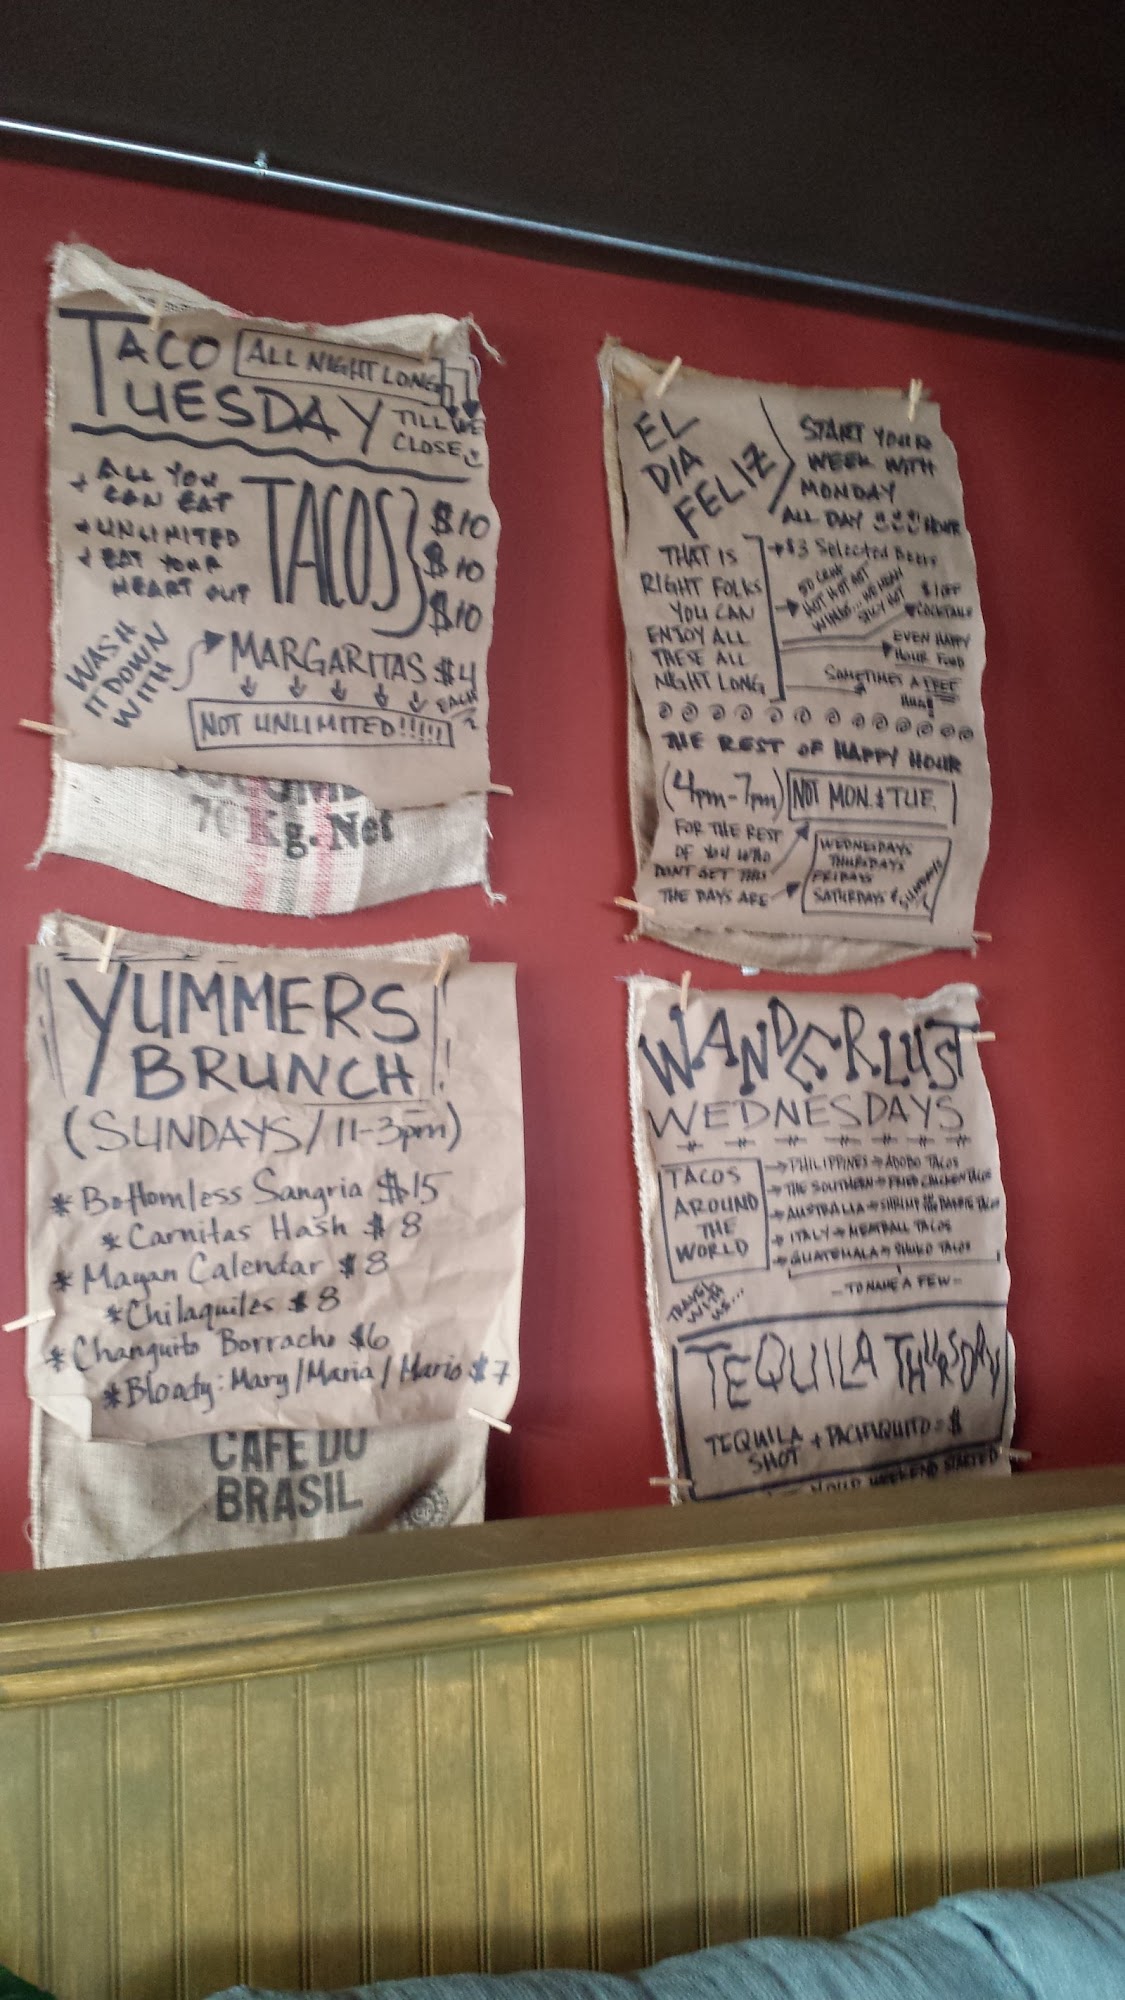 TACO
ALL NIGHT LONG
TUESDAY
TILL WE
CLOSE
+ ALL YOU
CAN EAT
+ UNLIMITED
+ EAT YOUR
HEART OUT
TACOS
$10
$10
$10
WASH
IT DOWN
WITH
MARGARITAS $4
EACH
NOT UNLIMITED!!!!!
70 Kg. Net
EL
DIA
FELIZ
START YOUR
WEEK WITH
MONDAY
ALL DAY HOUR
THAT IS
RIGHT FOLKS
YOU CAN
ENJOY ALL
THESE ALL
NIGHT LONG
$3 Selected Beers
HOT HOT HOT
WINGS... WE MEAN
SPICY HOT
$1 OFF
COCKTAILS
EVEN HAPPY
HOUR FOOD
SOMETIMES A FREE
HUG!
THE REST OF HAPPY HOUR
(4pm-7pm) NOT MON. & TUE.
FOR THE REST
OF YOU WHO
DONT GET THIS
THE DAYS ARE
WEDNESDAYS
THURSDAYS
FRIDAYS
SATURDAYS & SUNDAYS
YUMMERS
BRUNCH!
(SUNDAYS/11-3pm)
* Bottomless Sangria $15
* Carnitas Hash $8
* Mayan Calendar $8
* Chilaquiles $8
* Changuito Borracho $6
* Bloody: Mary/Maria/Mario $7
CAFE DO
BRASIL
WANDERLUST
WEDNESDAYS
TACOS
AROUND
THE
WORLD
PHILIPPINES ADOBO TACOS
THE SOUTHERN FRIED CHICKEN TACOS
AUSTRALIA SHRIMP ON THE BARBIE TACOS
ITALY MEATBALL TACOS
GUATEMALA SHUKO TACOS
- TO NAME A FEW -
TRAVEL
WITH
US...
TEQUILA THURSDAY
TEQUILA
SHOT
+ PACIFIQUITO = $
YOUR WEEKEND STARTED